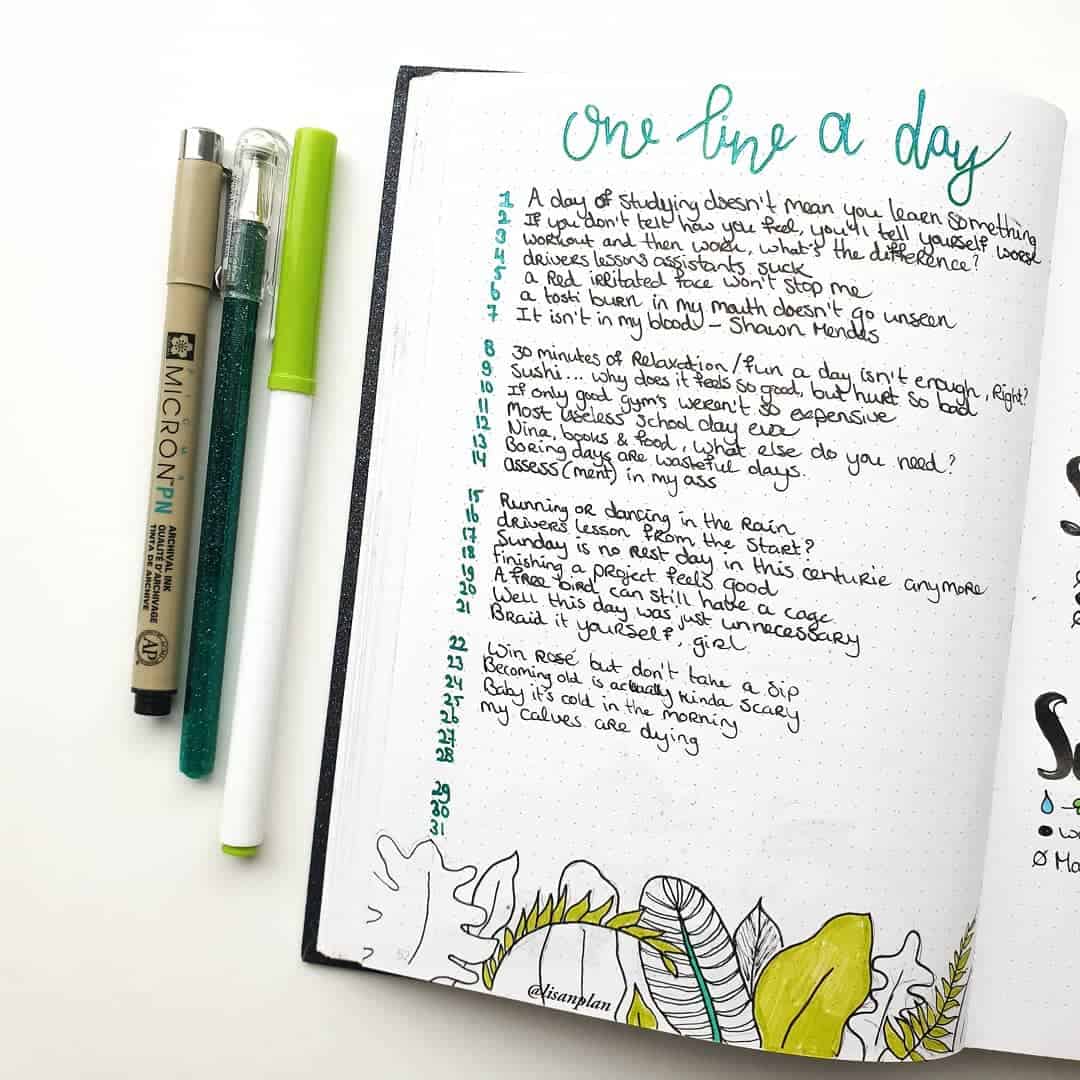 one line a day
1 A day of studying doesn't mean you learn something
2 If you don't tell how you feel, you'll tell yourself worse
3 workout and then work, what's the difference?
4 drivers lessons assistants suck
5 a Red irritated face won't stop me
6 a tosti burn in my mouth doesn't go unseen
7 It isn't in my blood - Shawn Mendes
8 30 minutes of Relaxation/fun a day isn't enough, Right?
9 Sushi... why does it feels so good, but hurt so bad
10 If only good gym's weren't so expensive
11 Most useless school day ever
12 Nina, books & food, what else do you need?
13 Boring days are wasteful days.
14 assess(ment) in my ass
15 Running or dancing in the Rain
16 drivers lesson from the start?
17 Sunday is no rest day in this centurie anymore
18 finishing a project feels good
19 A free bird can still have a cage
20 Well this day was just unnecessary
21 Braid it yourself, girl
22 Win Rosé but don't take a sip
23 Becoming old is actually kinda scary
24 Baby it's cold in the morning
25 my calves are dying
26
27
28
29
30
31
52
@lisanplan
PIGMA
MICRON PN
ARCHIVAL INK
QUALITÉ D'ARCHIVAGE
TINTA DE ARCHIVE
AP